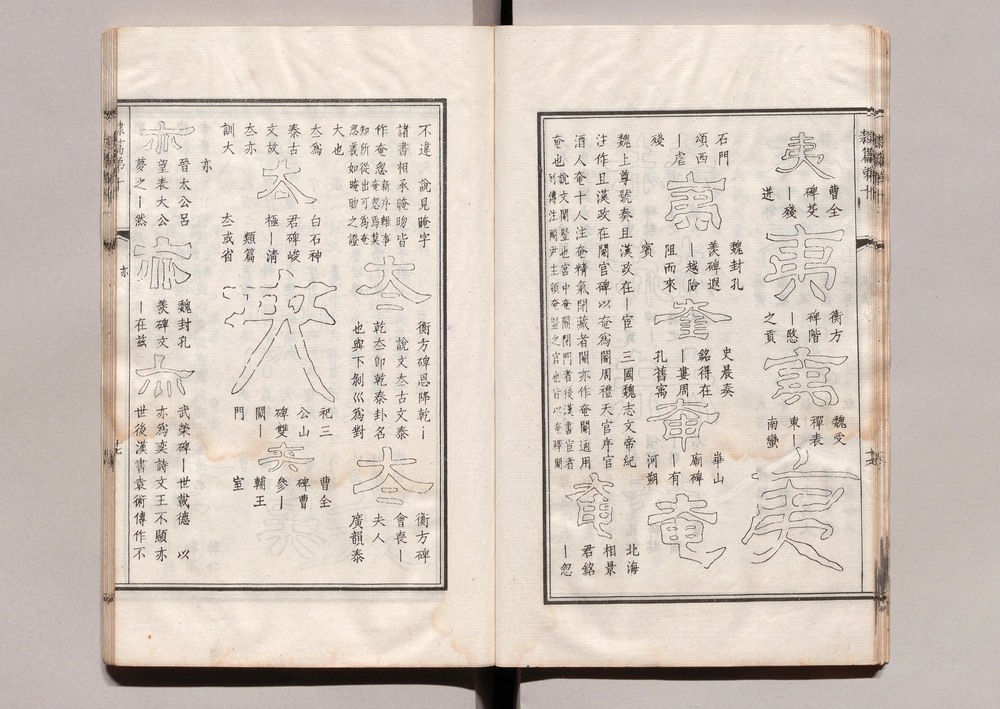 隸篇第十
夷
曹全
碑芟
—殘
迸
夷
衡方
碑階
—愍
之貢
夷
魏受
禪表
東—
南蠻
夷
石門
頌西
—虐
殘
夷
魏封孔
羨碑遐
—越險
阻而來
賓
奎
史晨奏
銘得在
—婁周
孔舊寓
奄
華山
廟碑
—有
河朔
奄
魏上尊號奏且漢政在—宦 三國魏志文帝紀
注作且漢政在閹宦碑以奄爲閹周禮天官序官
酒人奄十人注奄精氣閉藏者閹亦作奄閹通用
奄也 說文閹豎也宮中奄閽閉門者後漢書宦者
列傳注閹尹主領奄豎之官也皆以奄釋閹
奄
北海
相景
君銘
—忽
不違 說見腌字
諸書相承晻昒皆
作奄忽 新序雜事
奄忽爲莫
知所從出可爲奄
忽義如晻昒之證
夳
衡方碑恩降乾
說文夳古文泰
乾夳卽乾泰卦名
也與下剝巛爲對
夳
衡方碑
會喪—
夫人
廣韻泰
大也
夳爲
泰古
文故
夳亦
訓大
夳
白石神
君碑峻
極—清
類篇
夳或省
奕
祀三
公山
碑雙
闕—
門
奕
曹全
碑曹
參—
輔王
室
亦
亦
晉太公呂
望表大公
夢之—然
亦
魏封孔
羨碑文
—在茲
亦
武榮碑—世載德 以
亦爲奕詩文王不顯亦
世後漢書袁術傳作不
隸篇第十
亦
十七